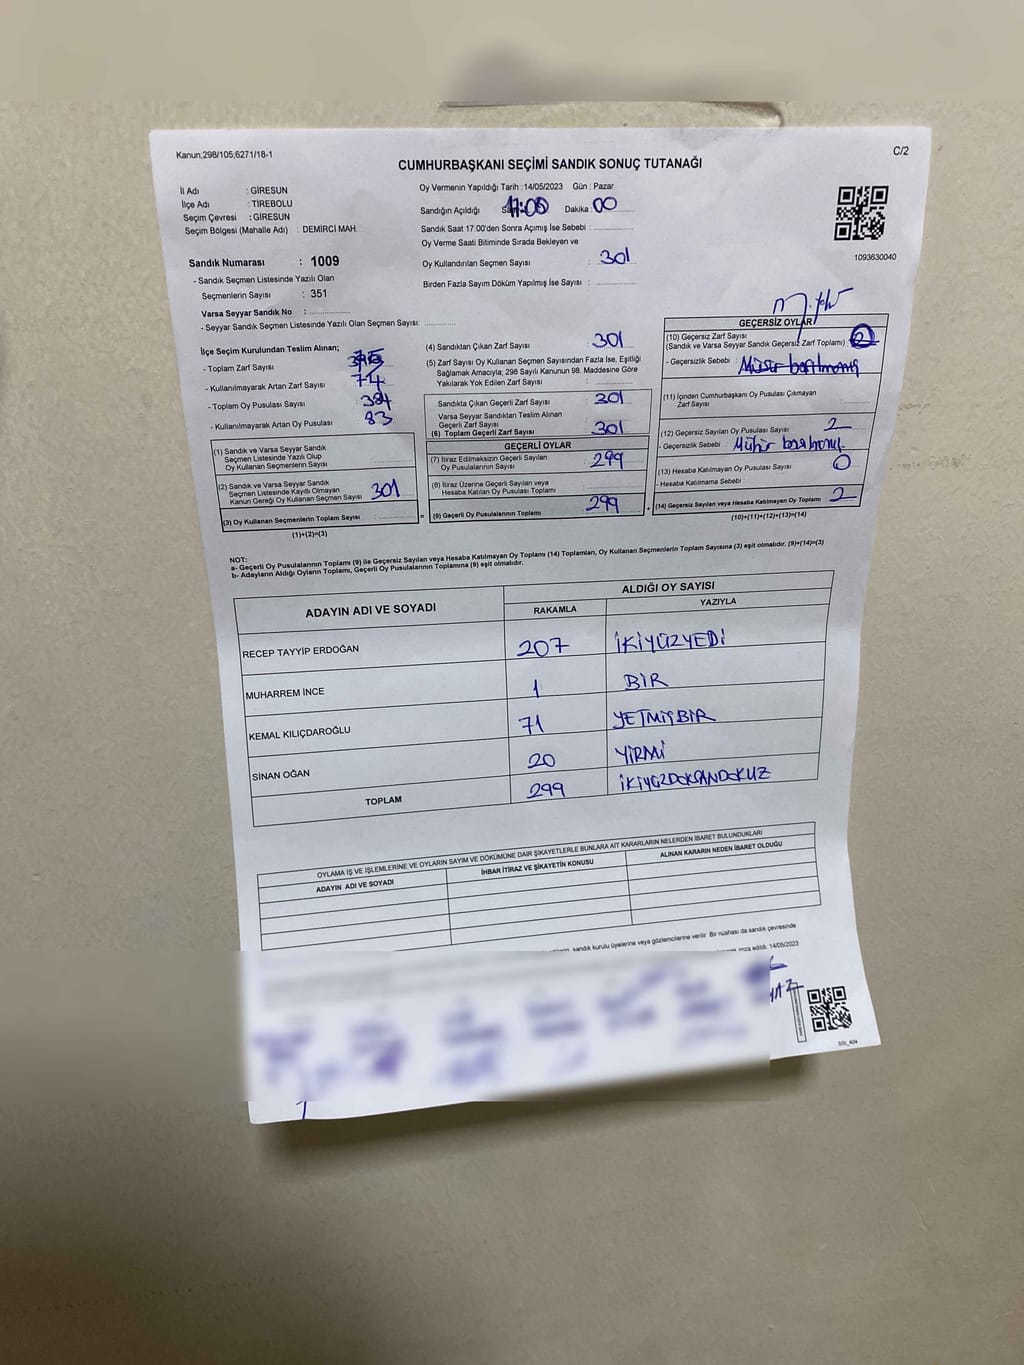 Kanun;298/105;6271/18-1
C/2
CUMHURBAŞKANI SEÇİMİ SANDIK SONUÇ TUTANAĞI
İl Adı : GİRESUN
İlçe Adı : TİREBOLU
Seçim Çevresi : GİRESUN
Seçim Bölgesi (Mahalle Adı) : DEMİRCİ MAH.
Sandık Numarası : 1009
- Sandık Seçmen Listesinde Yazılı Olan
Seçmenlerin Sayısı : 351
Varsa Seyyar Sandık No :
- Seyyar Sandık Seçmen Listesinde Yazılı Olan Seçmen Sayısı:
Oy Vermenin Yapıldığı Tarih :14/05/2023 Gün : Pazar
Sandığın Açıldığı 17:00 Dakika :00
Sandık Saat 17:00'den Sonra Açımış İse Sebebi :
Oy Verme Saati Bitiminde Sırada Bekleyen ve
Oy Kullandırılan Seçmen Sayısı : 301
Birden Fazla Sayım Döküm Yapılmış İse Sayısı :
1093630040
İlçe Seçim Kurulundan Teslim Alınan;
- Toplam Zarf Sayısı
- Kullanılmayarak Artan Zarf Sayısı 74
- Toplam Oy Pusulası Sayısı 384
- Kullanılmayarak Artan Oy Pusulası 83
(1) Sandık ve Varsa Seyyar Sandık
Seçmen Listesinde Yazılı Olup
Oy Kullanan Seçmenlerin Sayısı
(2) Sandık ve Varsa Seyyar Sandık
Seçmen Listesinde Kayıtlı Olmayan
Kanun Gereği Oy Kullanan Seçmen Sayısı 301
(3) Oy Kullanan Seçmenlerin Toplam Sayısı
(1)+(2)=(3)
(4) Sandıktan Çıkan Zarf Sayısı : 301
(5) Zarf Sayısı Oy Kullanan Seçmen Sayısından Fazla İse, Eşitliği
Sağlamak Amacıyla; 298 Sayılı Kanunun 98. Maddesine Göre
Yakılarak Yok Edilen Zarf Sayısı :
Sandıkta Çıkan Geçerli Zarf Sayısı : 301
Varsa Seyyar Sandıktan Teslim Alınan
Geçerli Zarf Sayısı
(6) Toplam Geçerli Zarf Sayısı : 301
GEÇERLİ OYLAR
(7) İtiraz Edilmeksizin Geçerli Sayılan
Oy Pusulalarının Sayısı : 299
(8) İtiraz Üzerine Geçerli Sayılan veya
Hesaba Katılan Oy Pusulası Toplamı
= (9) Geçerli Oy Pusulalarının Toplamı 299
GEÇERSİZ OYLAR
(10) Geçersiz Zarf Sayısı
(Sandık ve Varsa Seyyar Sandık Geçersiz Zarf Toplam) : 2
- Geçersizlik Sebebi :
(11) İçinden Cumhurbaşkanı Oy Pusulası Çıkmayan
Zarf Sayısı
(12) Geçersiz Sayılan Oy Pusulası Sayısı : 2
- Geçersizlik Sebebi : Mühür
(13) Hesaba Katılmayan Oy Pusulası Sayısı : 0
- Hesaba Katılmama Sebebi
+ (14) Geçersiz Sayılan veya Hesaba Katılmayan Oy Toplamı : 2
(10)+(11)+(12)+(13)=(14)
NOT:
a- Geçerli Oy Pusulalarının Toplamı (9) ile Geçersiz Sayılan veya Hesaba Katılmayan Oy Toplamı (14) Toplamları, Oy Kullanan Seçmenlerin Toplam Sayısına (3) eşit olmalıdır. (9)+(14)=(3)
b- Adayların Aldığı Oyların Toplamı, Geçerli Oy Pusulalarının Toplamına (9) eşit olmalıdır.
ADAYIN ADI VE SOYADI
ALDIĞI OY SAYISI
RAKAMLA YAZIYLA
RECEP TAYYİP ERDOĞAN 207 İKİYÜZYEDİ
MUHARREM İNCE 1 BİR
KEMAL KILIÇDAROĞLU 71 YETMİŞBİR
SİNAN OĞAN 20 YİRMİ
TOPLAM 299 İKİYÜZDOKSANDOKUZ
OYLAMA İŞ VE İŞLEMLERİNE VE OYLARIN SAYIM VE DÖKÜMÜNE DAİR ŞİKAYETLERLE BUNLARA AİT KARARLARIN NELERDEN İBARET BULUNDUKLARI
ADAYIN ADI VE SOYADI İHBAR İTİRAZ VE ŞİKAYETİN KONUSU ALINAN KARARIN NEDEN İBARET OLDUĞU
sandık kurulu üyelerine veya gözlemcilerine verilir. Bir nüshası da sandık çevresinde
imza edildi. 14/05/2023